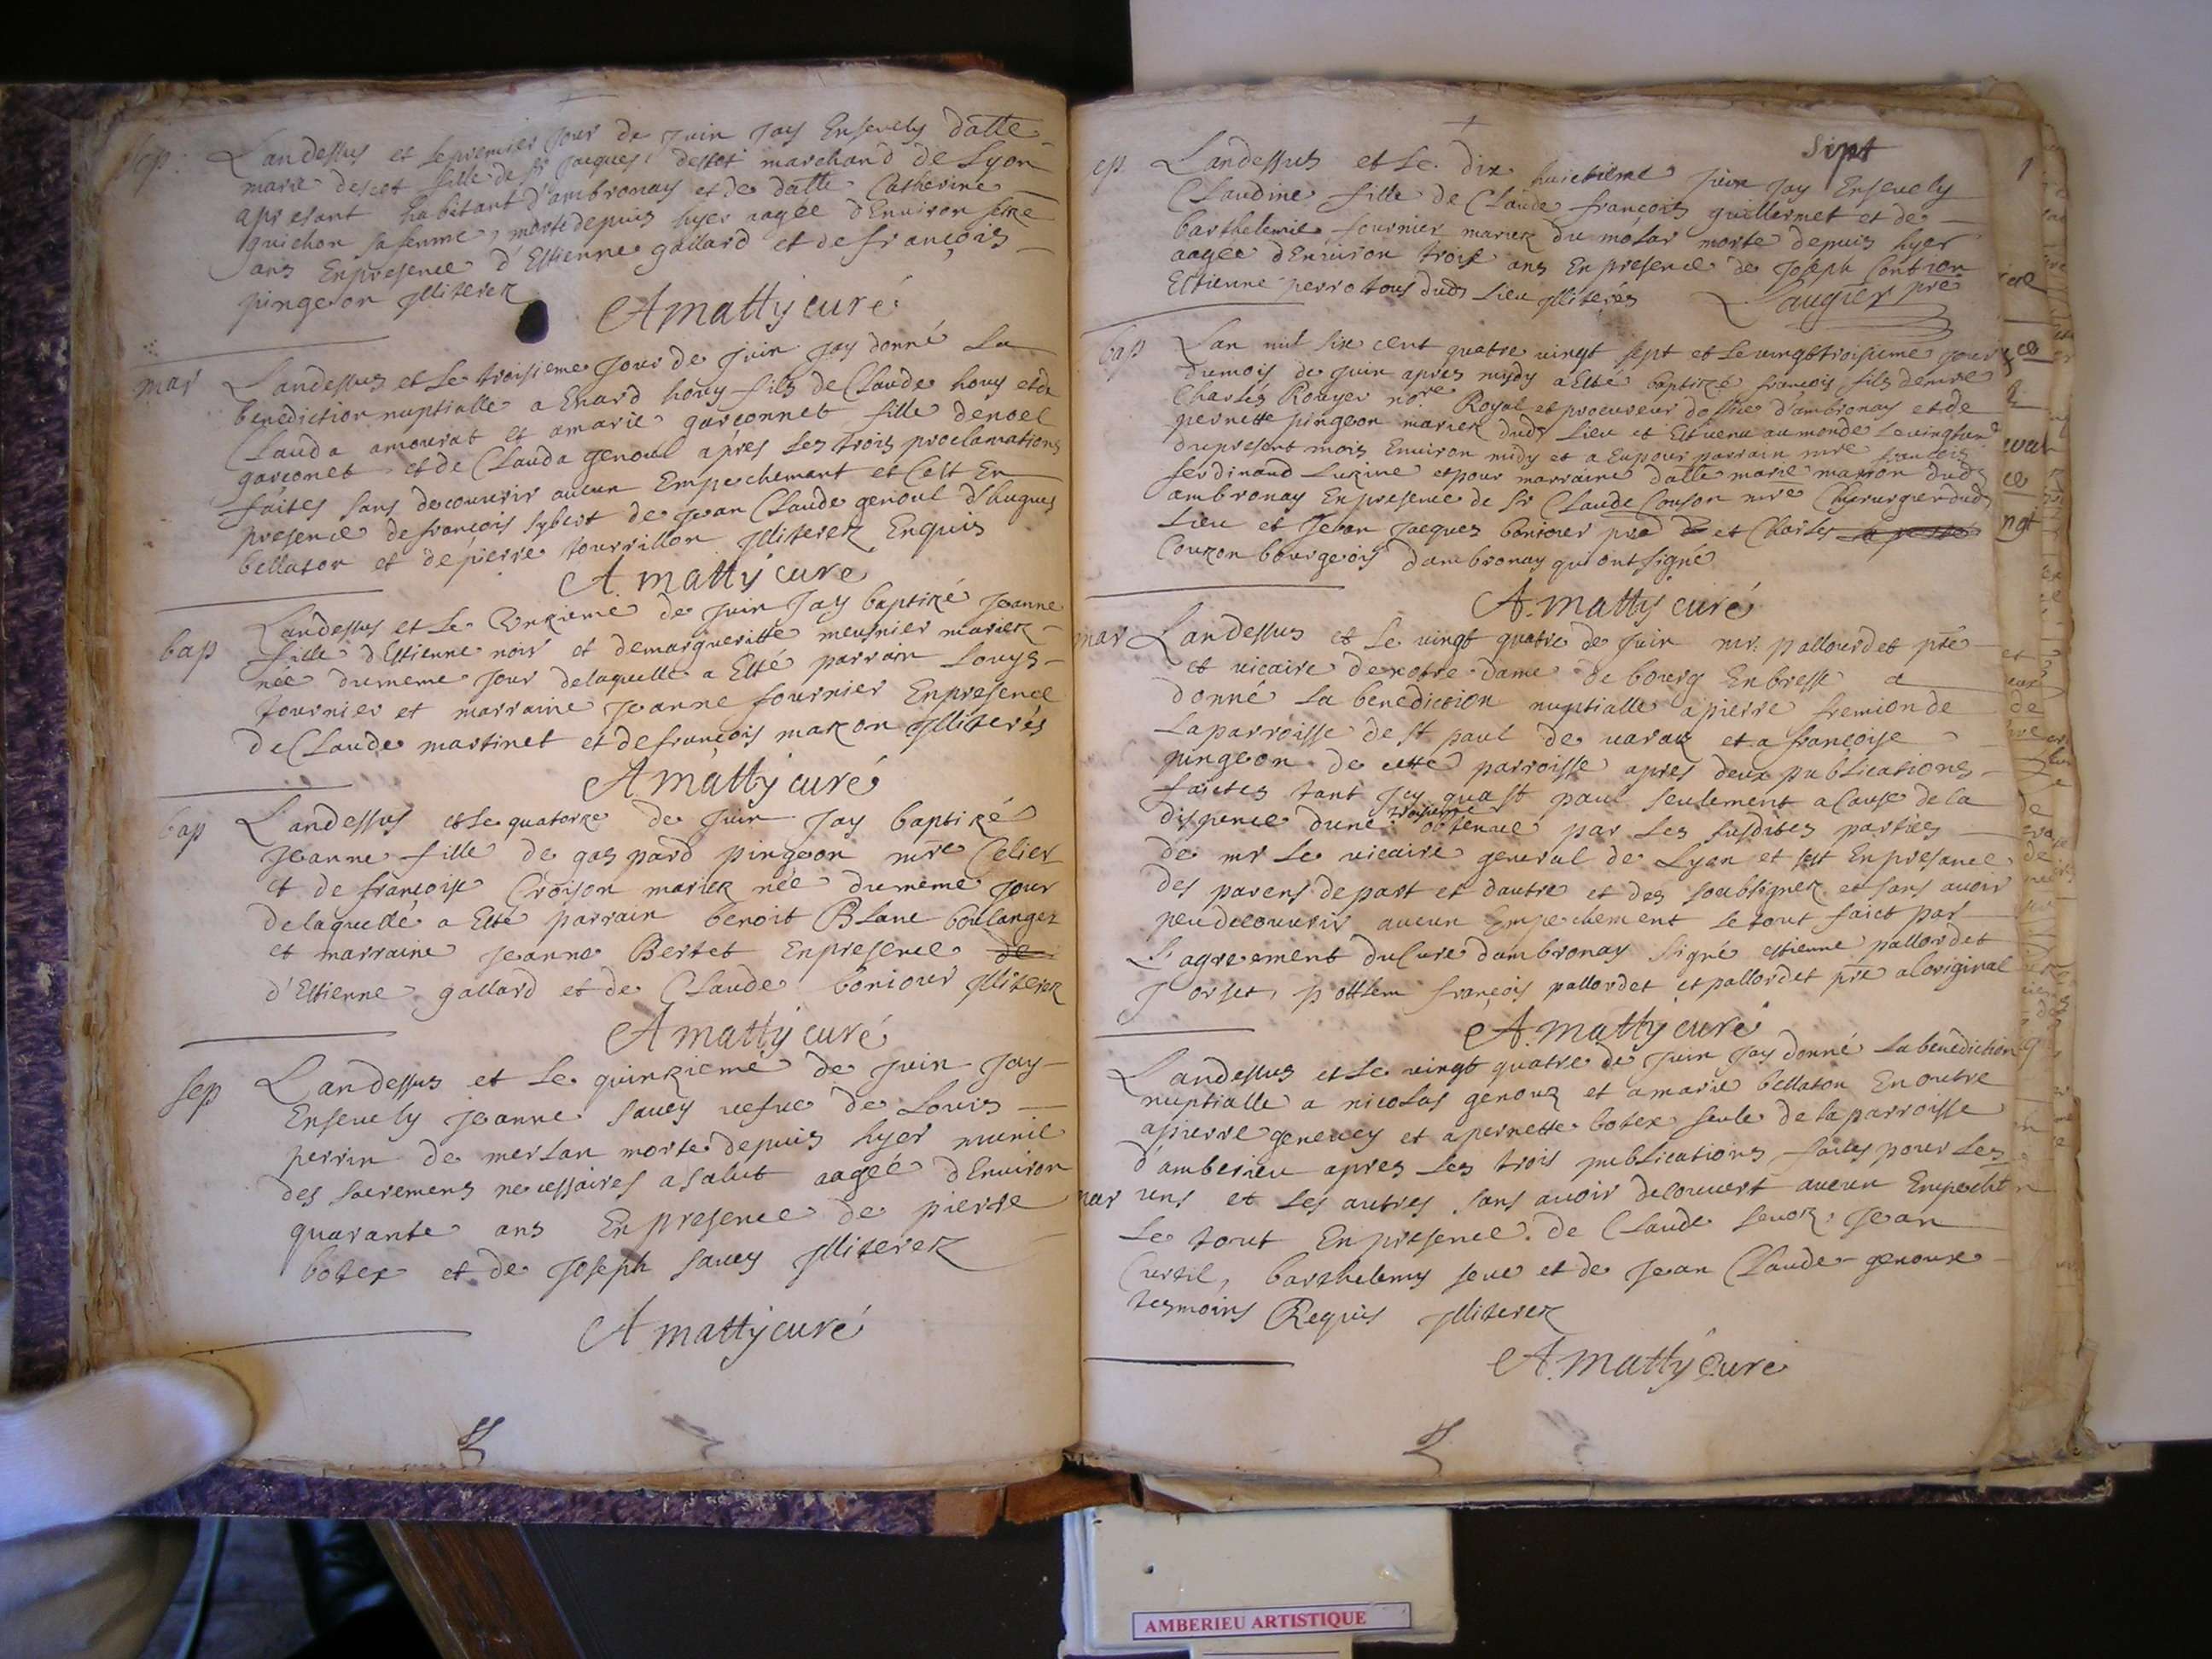 sep.
Landessus et le premier jour de juin jay Ensevely datte
marie descot fille de sr jacques descot marchand de Lyon
apresant habitant d'ambronay et de datte Catherine
guichon sa femme, morte depuis hyer aagée d'Environ seze
ans Enpresence d'Estienne gallard et de françois
pingeon Illiterez
A matty curé
mar
Landessus et Le troisieme Jour de juin jay donné La
benediction nuptialle a Enard houy fils de Claude houy et de
Clauda amourat et amarie garçonnet fille denoel
garçonet et de Clauda genoul apres Les trois proclamations
faites sans decouvrir aucun Empechemant et Cest En
presence de françois sybert de jean Claude genoul d'hugues
bellaton et de pierre tourrillon Illiterez Enquis
A. matty cure
bap
Landessus et Le Onzieme de juin Jay baptizé jeanne
fille d'Estienne noir et demargueritte meusnier mariez
née dumeme jour delaquelle a Esté parrain Louys
fournier et marraine jeanne fournier Enpresence
de Claude martinet et de françois mazon Illiterés
A matty curé
bap
Landessus et Le quatorze de juin Jay baptizé
Jeanne fille de gaspard pingeon mre Celier
et de françoise Croison mariez née dumeme jour
delaquelle a Esté parrain benoit Blanc boulanger
et marraine Jeanne Bertet Enpresence de
d'Estienne gallard et de Claude bonjour Illiterez
A matty curé
sep
Landessus et Le quinzieme de juin Jay
Ensevely Jeanne savey vefve de Louis
perrin de merlan morte depuis hyer munie
des sacremens necessaires asalut aagée d'Environ
quarante ans Enpresence de pierre
botex et de Joseph savey Illiterez
A matty curé
sept
ep
Landessus et Le dix huictieme juin Jay Ensevely
Claudine fille de Claude françois guillermet et de
barthelemie fournier mariez du molar morte depuis hyer
aagée d'Environ trois ans Enpresence de Joseph Contion
Estienne perro tous dudt Lieu Illiterés Laugier pre
bap
Lan mil six cent quatre vingt sept et Le vingttroisieme jour
dumois de juin apres midy a Esté baptizé françois fils de mre
Charles Rouyer nore Royal et procureur doffice d'ambronay et de
pernette pingeon mariez dudt Lieu et Est venu au monde Levingtun
dupresent mois Environ midy et a Eu pour parrain mre françois
ferdinand Luzine et pour marraine datte marie masson dudt
ambronay Enpresence de Sr Claude Couson mre Chyrurgien dudt
Lieu et Jean Jacques bonjour pre et Charles
Couzon bourgeois dambronay qui ont signé
A. matty curé
mar
Landessus et Le vingt quatre de juin mr. pallourdet pre
et vicaire denotre dame de bourg Enbresse a
donné La benediction nuptialle apierre fremion de
Laparroisse de st paul de varax et a françoise
pingeon de cette parroisse apres deux publications
faictes tant Icy qua st paul seulement a Cause dela
dispence dune troisieme obtenue par Les susdites parties
de mr Le vicaire general de Lyon et sest Enpresance
des parens depart et dautre et des soubsignez et sans avoir
peu decouvrir aucun Empechement Le tout faict par
L'agreement ducuré dambronay signé estienne pallordet
françois pallordet et pallordet pre aloriginal
A. matty curé
mar
Landessus et Le vingt quatre de juin Jay donné La benediction
nuptialle a nicolas genoux et amarie bellaton En outre
apierre genevey et apernette botex seule de la parroisse
d'amberieu apres Les trois publications faites pour Les
uns et Les autres sans avoir decouvert aucun Empecht
Le tout Enpresence de Claude Jean
Curtil, barthelemy seve et de Jean Claude genoux
tesmoins Requis Illiterez
A. matty Curé
AMBERIEU ARTISTIQUE